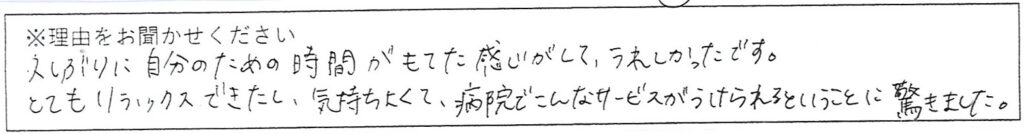 ※理由をお聞かせください
久しぶりに自分のための時間がもてた感じがして、うれしかったです。
とてもリラックスできたし、気持ちよくて、病院でこんなサービスがうけられるということに驚きました。